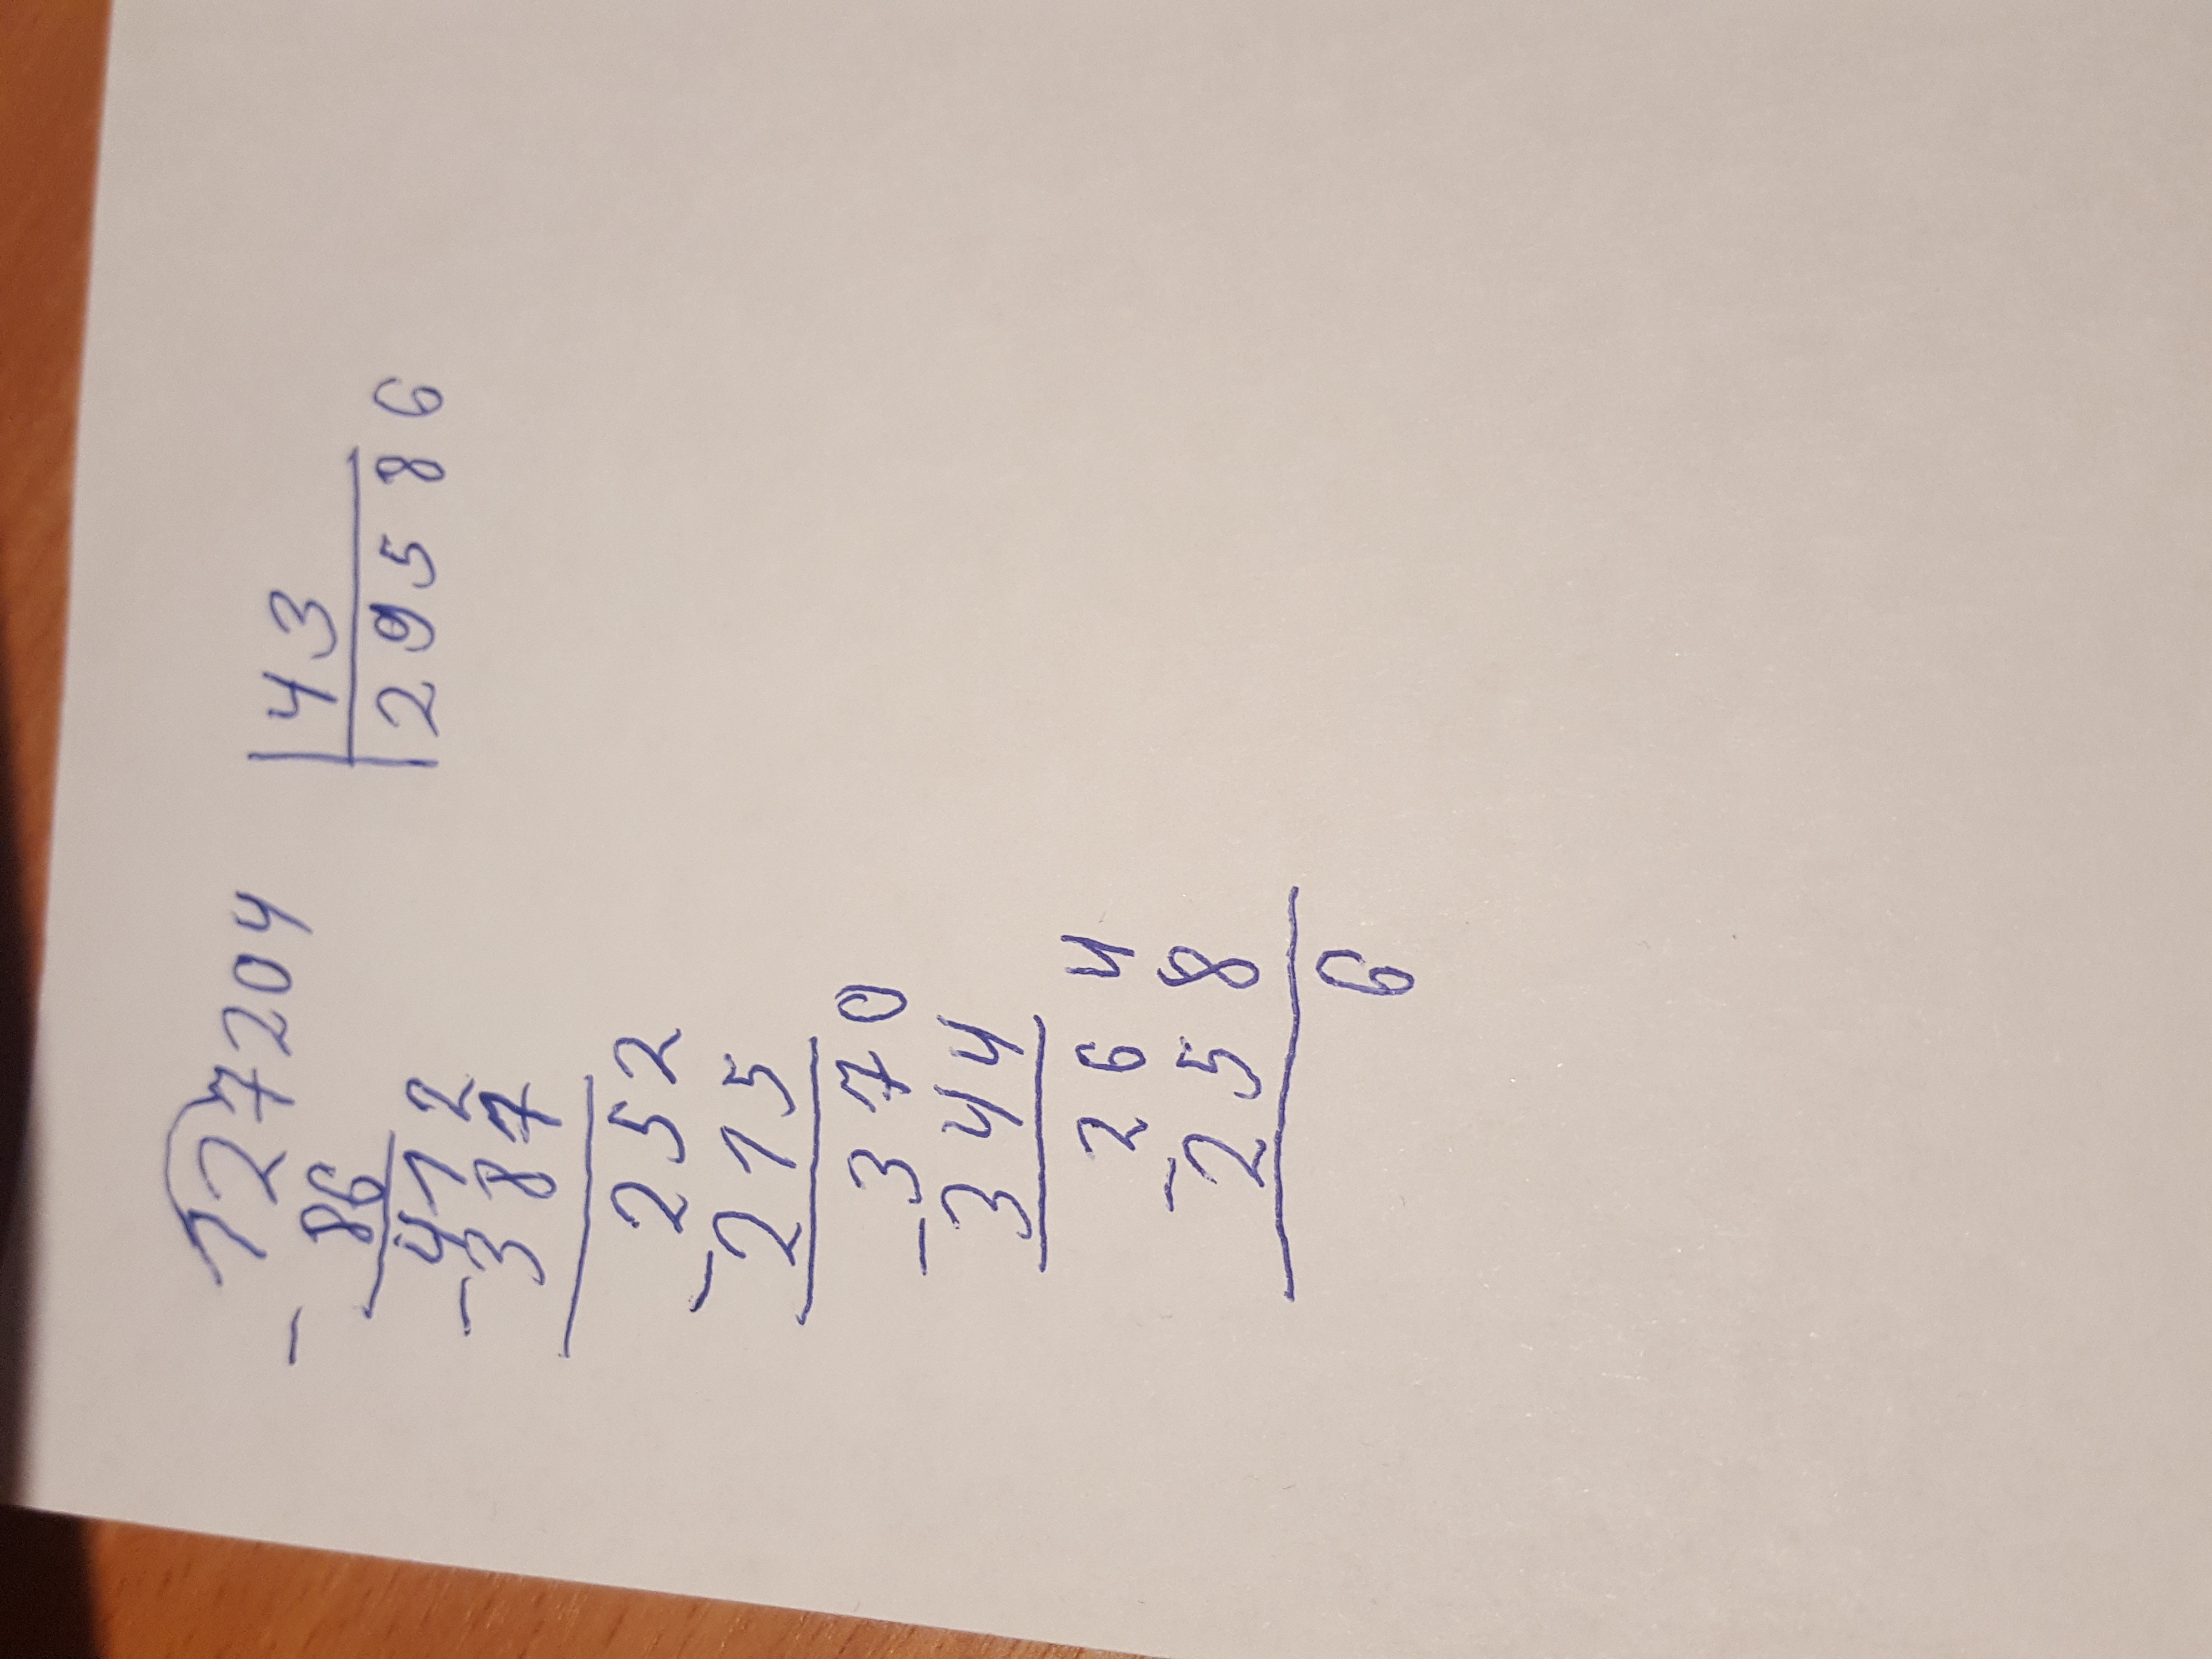 127204 | 43
29586
- 86
412
- 387
252
- 215
370
- 344
264
- 258
6